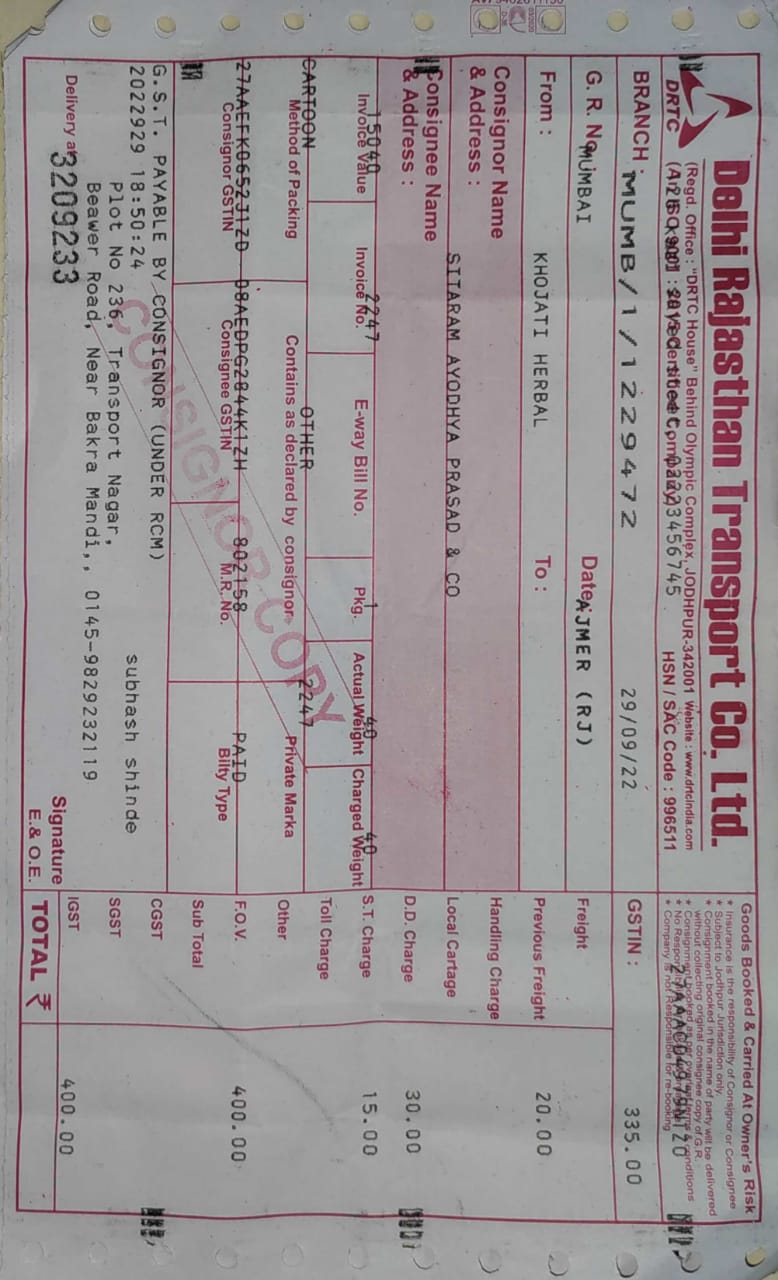 Delhi Rajasthan Transport Co. Ltd.
DRTC
(Regd. Office : "DRTC House" Behind Olympic Complex, JODHPUR-342001 Website : www.drtcindia.com
02223456745
HSN / SAC Code : 996511
Goods Booked & Carried At Owner's Risk
* Insurance is the responsibility of Consignor or Consignee
* Subject to Jodhpur Jurisdiction only.
* Consignment booked in the name of party will be delivered
without collecting original consignee copy of G.R.
* Company is not Responsible for re-booking
BRANCH : MUMB/1/1229472
29/09/22
GSTIN :
335.00
G. R. No. MUMBAI
Date: AJMER (RJ)
Freight
From :
KHOJATI HERBAL
To :
Previous Freight
20.00
Consignor Name
& Address :
Handling Charge
SITARAM AYODHYA PRASAD & CO
Local Cartage
Consignee Name
& Address :
D.D. Charge
30.00
15040
2247
1
40
40
Invoice Value
Invoice No.
E-way Bill No.
Pkg.
Actual Weight
Charged Weight
S.T. Charge
15.00
Toll Charge
CARTOON
OTHER
2247
Method of Packing
Contains as declared by consignor
Private Marka
Other
27AAEFK0652J1ZD
08AEDPG2844K1ZH
802158
PAID
F.O.V.
400.00
Consignor GSTIN
Consignee GSTIN
M.R. No.
Bilty Type
Sub Total
CONSIGNOR COPY
G.S.T. PAYABLE BY CONSIGNOR (UNDER RCM)
CGST
2022929 18:50:24
subhash shinde
Plot No 236, Transport Nagar,
SGST
Beawer Road, Near Bakra Mandi,, 0145-9829232119
Delivery at
3209233
IGST
400.00
Signature
E.& O.E.
TOTAL ₹